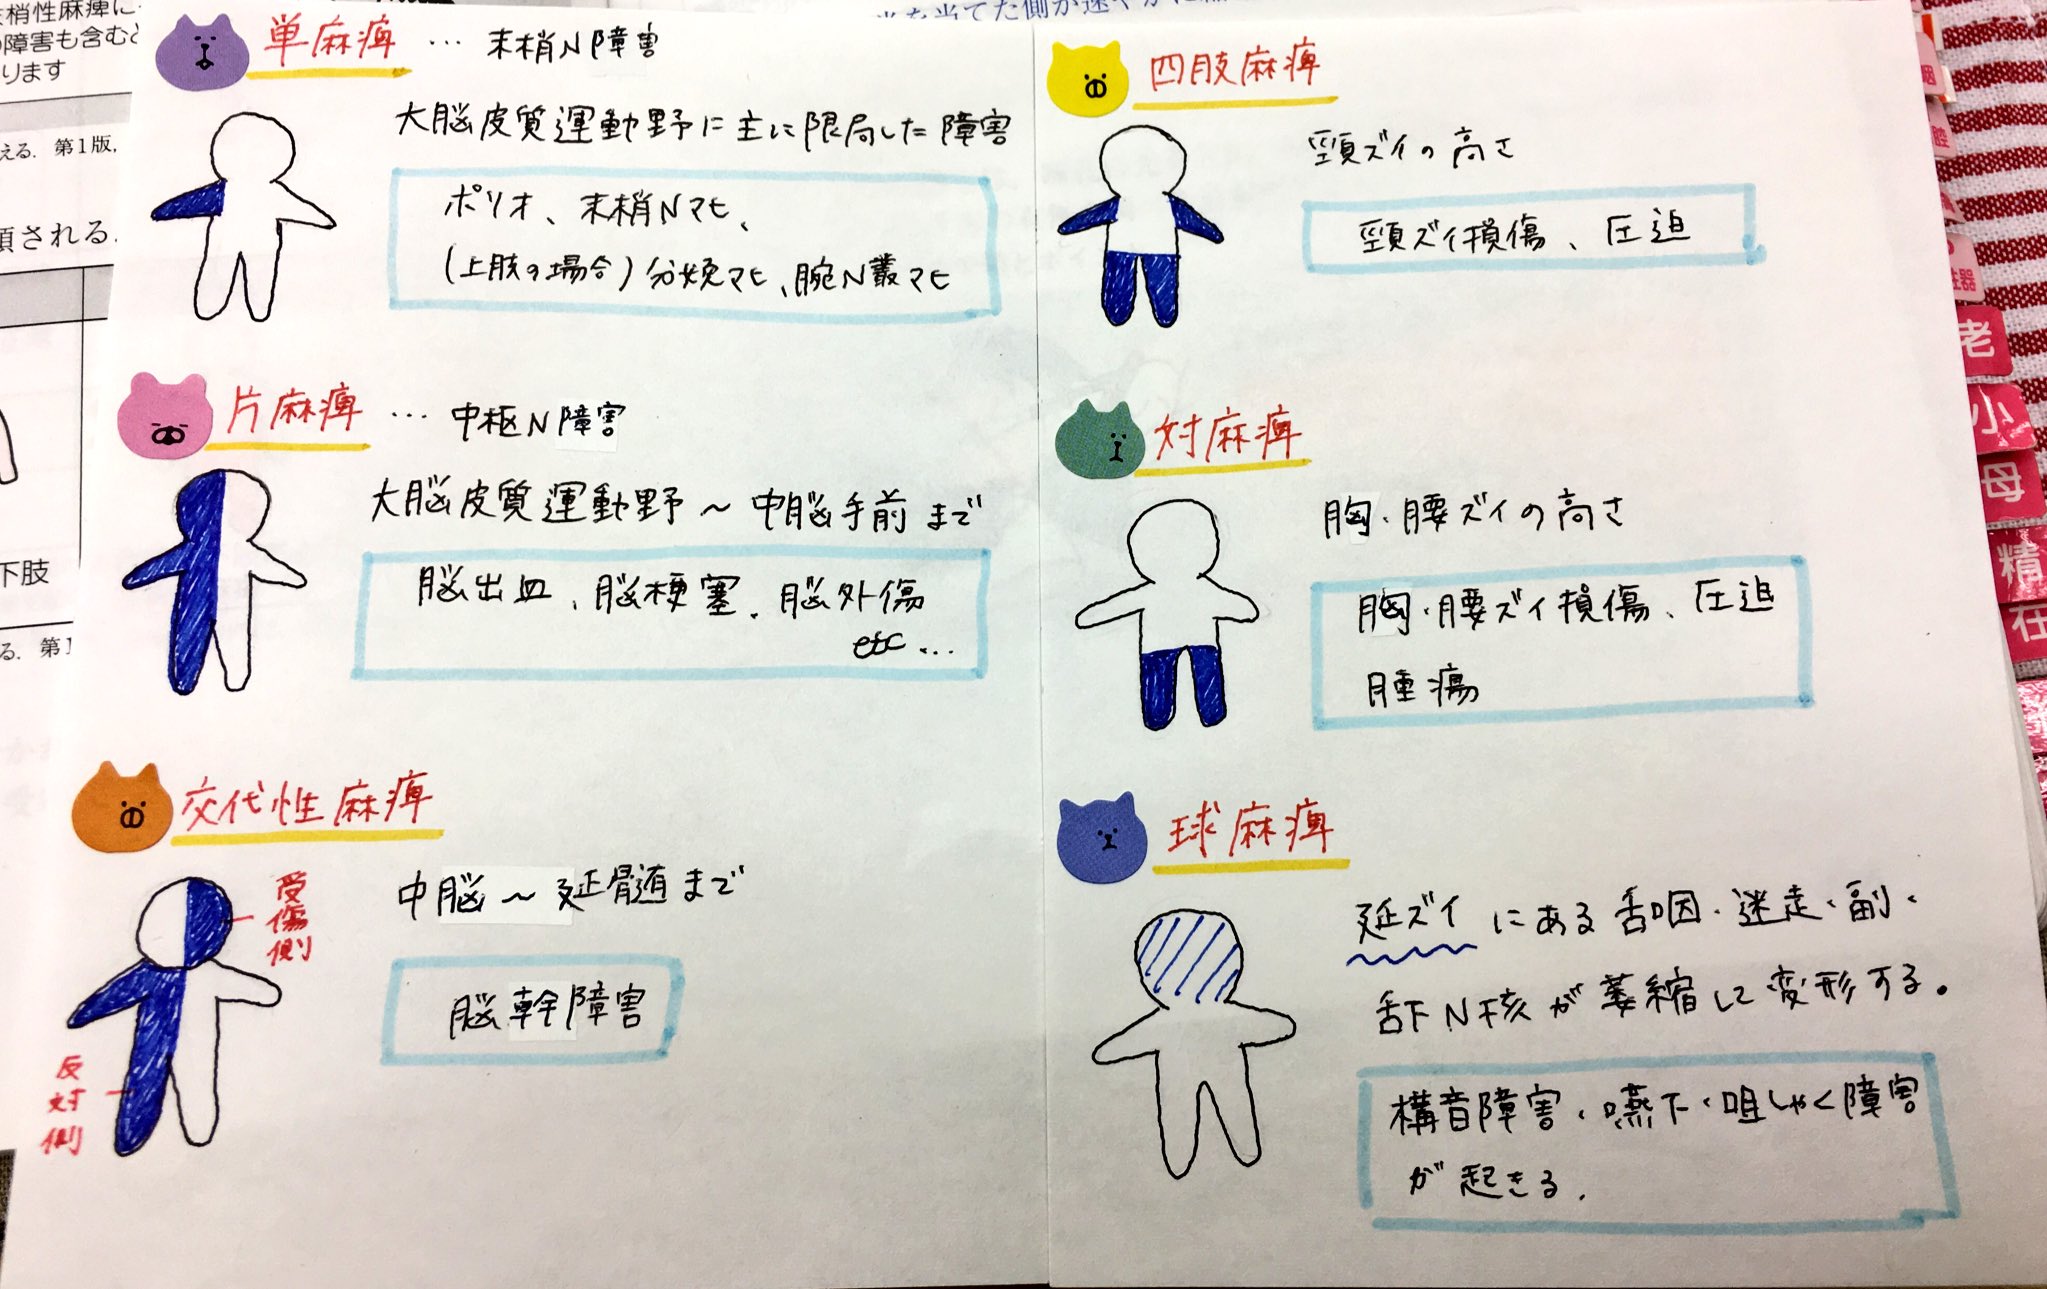 単麻痺 … 末梢N障害
大脳皮質運動野に主に限局した障害
ポリオ、末梢Nマヒ、
(上肢の場合)分娩マヒ、腕N叢マヒ
片麻痺 … 中枢N障害
大脳皮質運動野～中脳手前まで
脳出血、脳梗塞、脳外傷
etc…
交代性麻痺
受傷側
反対側
中脳～延髄まで
脳幹障害
四肢麻痺
頸ズイの高さ
頸ズイ損傷、圧迫
対麻痺
胸・腰ズイの高さ
胸・腰ズイ損傷、圧迫
腫瘍
球麻痺
延ズイにある舌咽・迷走・副・
舌下N核が萎縮して変形する。
構音障害・嚥下・咀しゃく障害
が起きる.
末梢性麻痺に
の障害も含むと
ります
える. 第1版,
類される.
下肢
る. 第1
当を当てた側が速やかに
性器
老
小
母
精
在